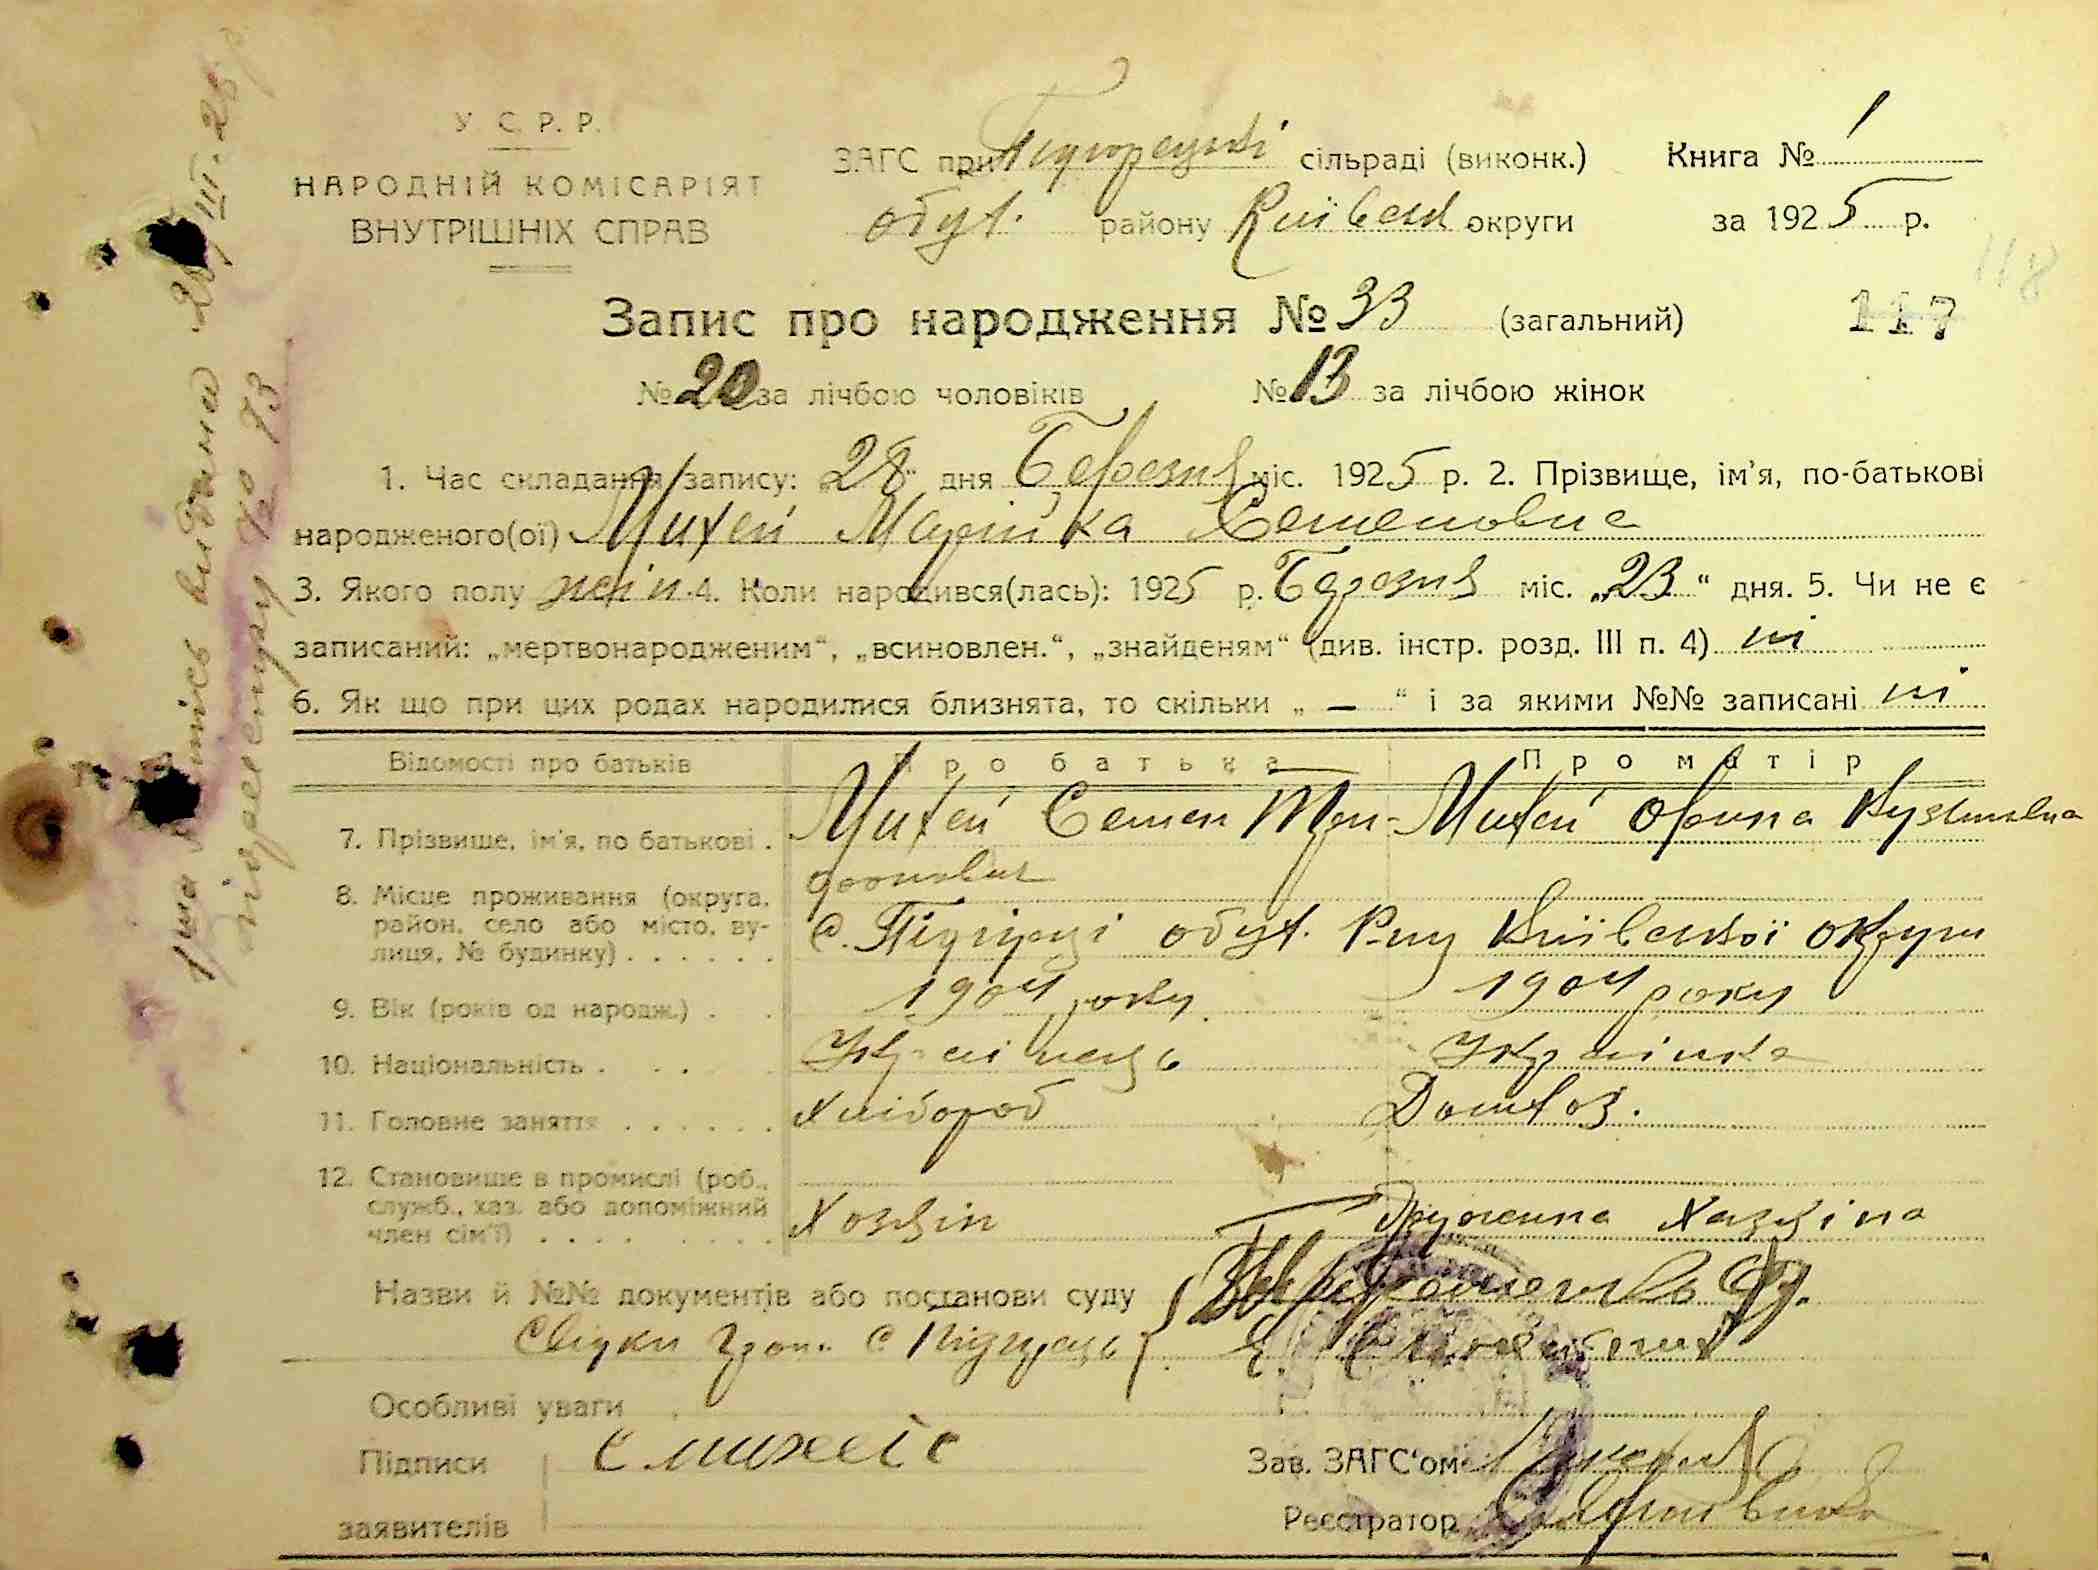 У. С. Р. Р.
НАРОДНІЙ КОМІСАРІЯТ
ВНУТРІШНІХ СПРАВ
ЗАГС при Підгорецькі сільраді (виконк.) Книга № 1
обух. району Київськ округи за 1925 р.
118
Запис про народження № 33 (загальний) 117
№ 20 за лічбою чоловіків № 13 за лічбою жінок
1. Час складання запису: „28" дня Березня міс. 1925 р. 2. Прізвище, ім'я, по-батькові
народженого(ої) Михей Марійка Семеновна
3. Якого полу жін. 4. Коли народився(лась): 1925 р. Березня міс. „23" дня. 5. Чи не є
записаний: „мертвонародженим", „всиновлен.", „знайденям" (див. інстр. розд. III п. 4) ні
6. Як що при цих родах народилися близнята, то скільки „ — " і за якими №№ записані ні
Відомості про батьків Про батька Про матір
7. Прізвище, ім'я, по батькові . Михей Семен Три- Михей Орина Кузьмівна
8. Місце проживання (округа,
район, село або місто, ву-
лиця, № будинку) . . . . . . С. Підгірці обух. Р-ну Київської округи
9. Вік (років од народж.) . . 1904 року 1904 року
10. Національність . . . Українець Українка
11. Головне заняття . . . . . . Хлібороб Домхоз.
12. Становище в промислі (роб.,
служб., хаз. або допоміжний
член сім'ї) . . . . . . . . Хозяін Дружина Хазяіна
Назви й №№ документів або постанови суду
Свідки гром. с Підгірець
Особливі уваги
Підписи С михей Зав. ЗАГС'ом
заявителів Реєстратор
видана 28/III.28 р.
№ 73